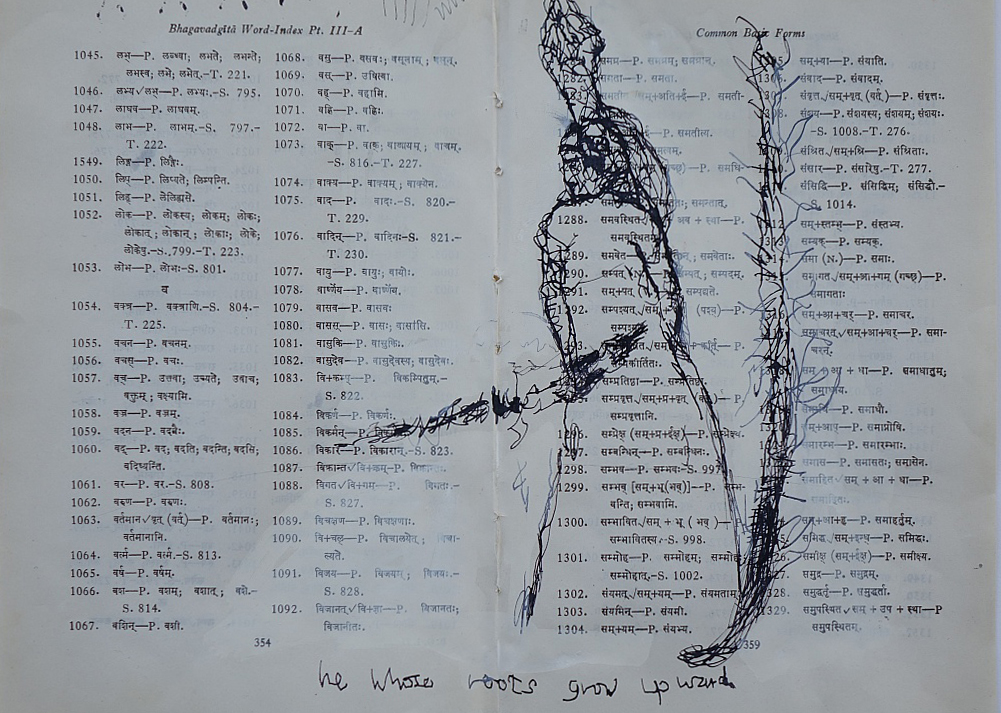 Bhagavadgītā Word-Index Pt. III-A
1045. लभ्—P. लब्ध्वा; लभते; लभन्ते;
लभस्व; लभे; लभेत्.-T. 221.
1046. लभ्य√लभ्—P. लभ्यः-S. 795.
1047. लाघव—P. लाघवम्.
1048. लाभ—P. लाभम्.-S. 797.-
T. 222.
1549. लिङ्ग—P. लिङ्गैः.
1050. लिप्—P. लिप्यते; लिम्पन्ति.
1051. लिह्—P. लेलिह्यसे.
1052. लोक—P. लोकस्य; लोकम्; लोकः;
लोकात्; लोकान्; लोकाः; लोके;
लोकेषु.-S. 799.-T. 223.
1053. लोभ—P. लोभः-S. 801.
व
1054. वक्त्र—P. वक्त्राणि.-S. 804.-
T. 225.
1055. वचन—P. वचनम्.
1056. वचस्—P. वचः.
1057. वच्—P. उक्त्वा; उच्यते; उवाच;
वक्तुम्; वक्ष्यामि.
1058. वज्र—P. वज्रम्.
1059. वदन—P. वदनैः.
1060. वद्—P. वद; वदति; वदन्ति; वदसि;
वदिष्यन्ति.
1061. वर—P. वर.-S. 808.
1062. वरुण—P. वरुणः.
1063. वर्तमान√वृत् (वर्त्)—P. वर्तमानः;
वर्तमानानि.
1064. वर्त्म—P. वर्त्म.-S. 813.
1065. वर्ष—P. वर्षम्.
1066. वश—P. वशम्; वशात्; वशे.-
S. 814.
1067. वशिन्—P. वशी.
354
1068. वसु—P. वसवः; वसूनाम्; वसून्.
1069. वस्—P. उषित्वा.
1070. वह्—P. वहामि.
1071. वह्नि—P. वह्निः.
1072. वा—P. वा.
1073. वाक्—P. वाक्; वाचम्.
-S. 816.-T. 227.
1074. वाक्य—P. वाक्यम्; वाक्येन.
1075. वाद—P. वादः-S. 820.-
T. 229.
1076. वादिन्—P. वादिनः-S. 821.-
T. 230.
1077. वायु—P. वायुः; वायोः.
1078. वार्ष्णेय—P. वार्ष्णेय.
1079. वासव—P. वासवः
1080. वासस्—P. वासः; वासांसि.
1081. वासुकि—P. वासुकिः.
1082. वासुदेव—P. वासुदेवस्य; वासुदेवः.
1083. वि+कम्प्—P. विकम्पितुम्.-
S. 822.
1084. विकर्ण—P. विकर्णः.
1085. विकर्मन्—P.
1086. विकार—P. विकारान्.-S. 823.
1087. विक्रान्त√वि+क्रम्—P.
1088. विगत√वि+गम्—P. विगतः-
S. 827.
1089. विचक्षण—P. विचक्षणाः.
1090. वि+चल्—P. विचालयेत्; विचा-
ल्यते.
1091. विजय—P. विजयम्; विजयः-
S. 828.
1092. विजानत्√वि+ज्ञा—P. विजानतः;
विजानीतः.
Common Basic Forms
1282. समता—P. समता.
1288. समवस्थित√ अव + स्था—P.
समवस्थितम्
1289. समवेत समवेताः.
1290. सम्पत् सम्पदम्.
1291. सम्+पत्
1292. सम्पश्यत्√सम् (पश्य)—P.
सम्प्रतिष्ठा—P. सम्प्रतिष्ठा.
सम्प्रवृत्त√सम्+प्र+वृत्
सम्प्रवृत्तानि.
1296. सम्प्रेक्ष् (सम्+प्र+ईक्ष्)—P. सम्प्रेक्ष्य.
1297. सम्बन्धिन्—P. सम्बन्धिनः.
1298. सम्भव—P. सम्भवः-S. 997.
1299. सम्भव् [सम्+भू(भव्)]—P. सम्भ-
वन्ति; सम्भवामि.
1300. सम्भावित√सम् + भू ( भव् )—P.
सम्भावितस्य.-S. 998.
1301. सम्मोह—P. सम्मोहम्; सम्मोहः
सम्मोहात्.-S. 1002.
1302. संयमत्√सम्+यम्—P. संयमताम्
1303. संयमिन्—P. संयमी.
1304. सम्+यम्—P. संयम्य.
सम्+या—P. संयाति.
संवाद—P. संवादम्.
संवृत्त√सम्+वृत् (वर्त्)—P. संवृत्तः.
संशय—P. संशयस्य; संशयम्; संशयः
-S. 1008.-T. 276.
संश्रित√सम्+श्रि—P. संश्रिताः.
संसार—P. संसारेषु.-T. 277.
संसिद्धि—P. संसिद्धिम्; संसिद्धौ.-
S. 1014.
सम्+स्तम्भ्—P. संस्तभ्य.
सम्यक्—P. सम्यक्.
समा (N.)—P. समाः.
समागत√सम्+आ+गम् (गच्छ)—P.
समागताः
सम्+आ+चर्—P. समाचर.
समाचरत्√सम्+आ+चर्—P. समा-
चरन्.
सम् + आ + धा—P. समाधातुम्;
समाधाय.
समाधि—P. समाधौ.
सम्+आप्—P. समाप्नोषि.
समारम्भ—P. समारम्भाः.
समास—P. समासतः; समासेन.
समाहित√सम् + आ + धा—P.
समाहितः.
सम्+आ+हृ—P. समाहर्तुम्.
समिद्ध√सम्+इन्ध्—P. समिद्धः.
समीक्ष् (सम्+ईक्ष्)—P. समीक्ष्य.
समुद्र—P. समुद्रम्.
1328. समुद्धर्तृ—P. समुद्धर्ता.
1329. समुपस्थित√सम् + उप + स्था—P
समुपस्थितम्.
359
he whose roots grow upward